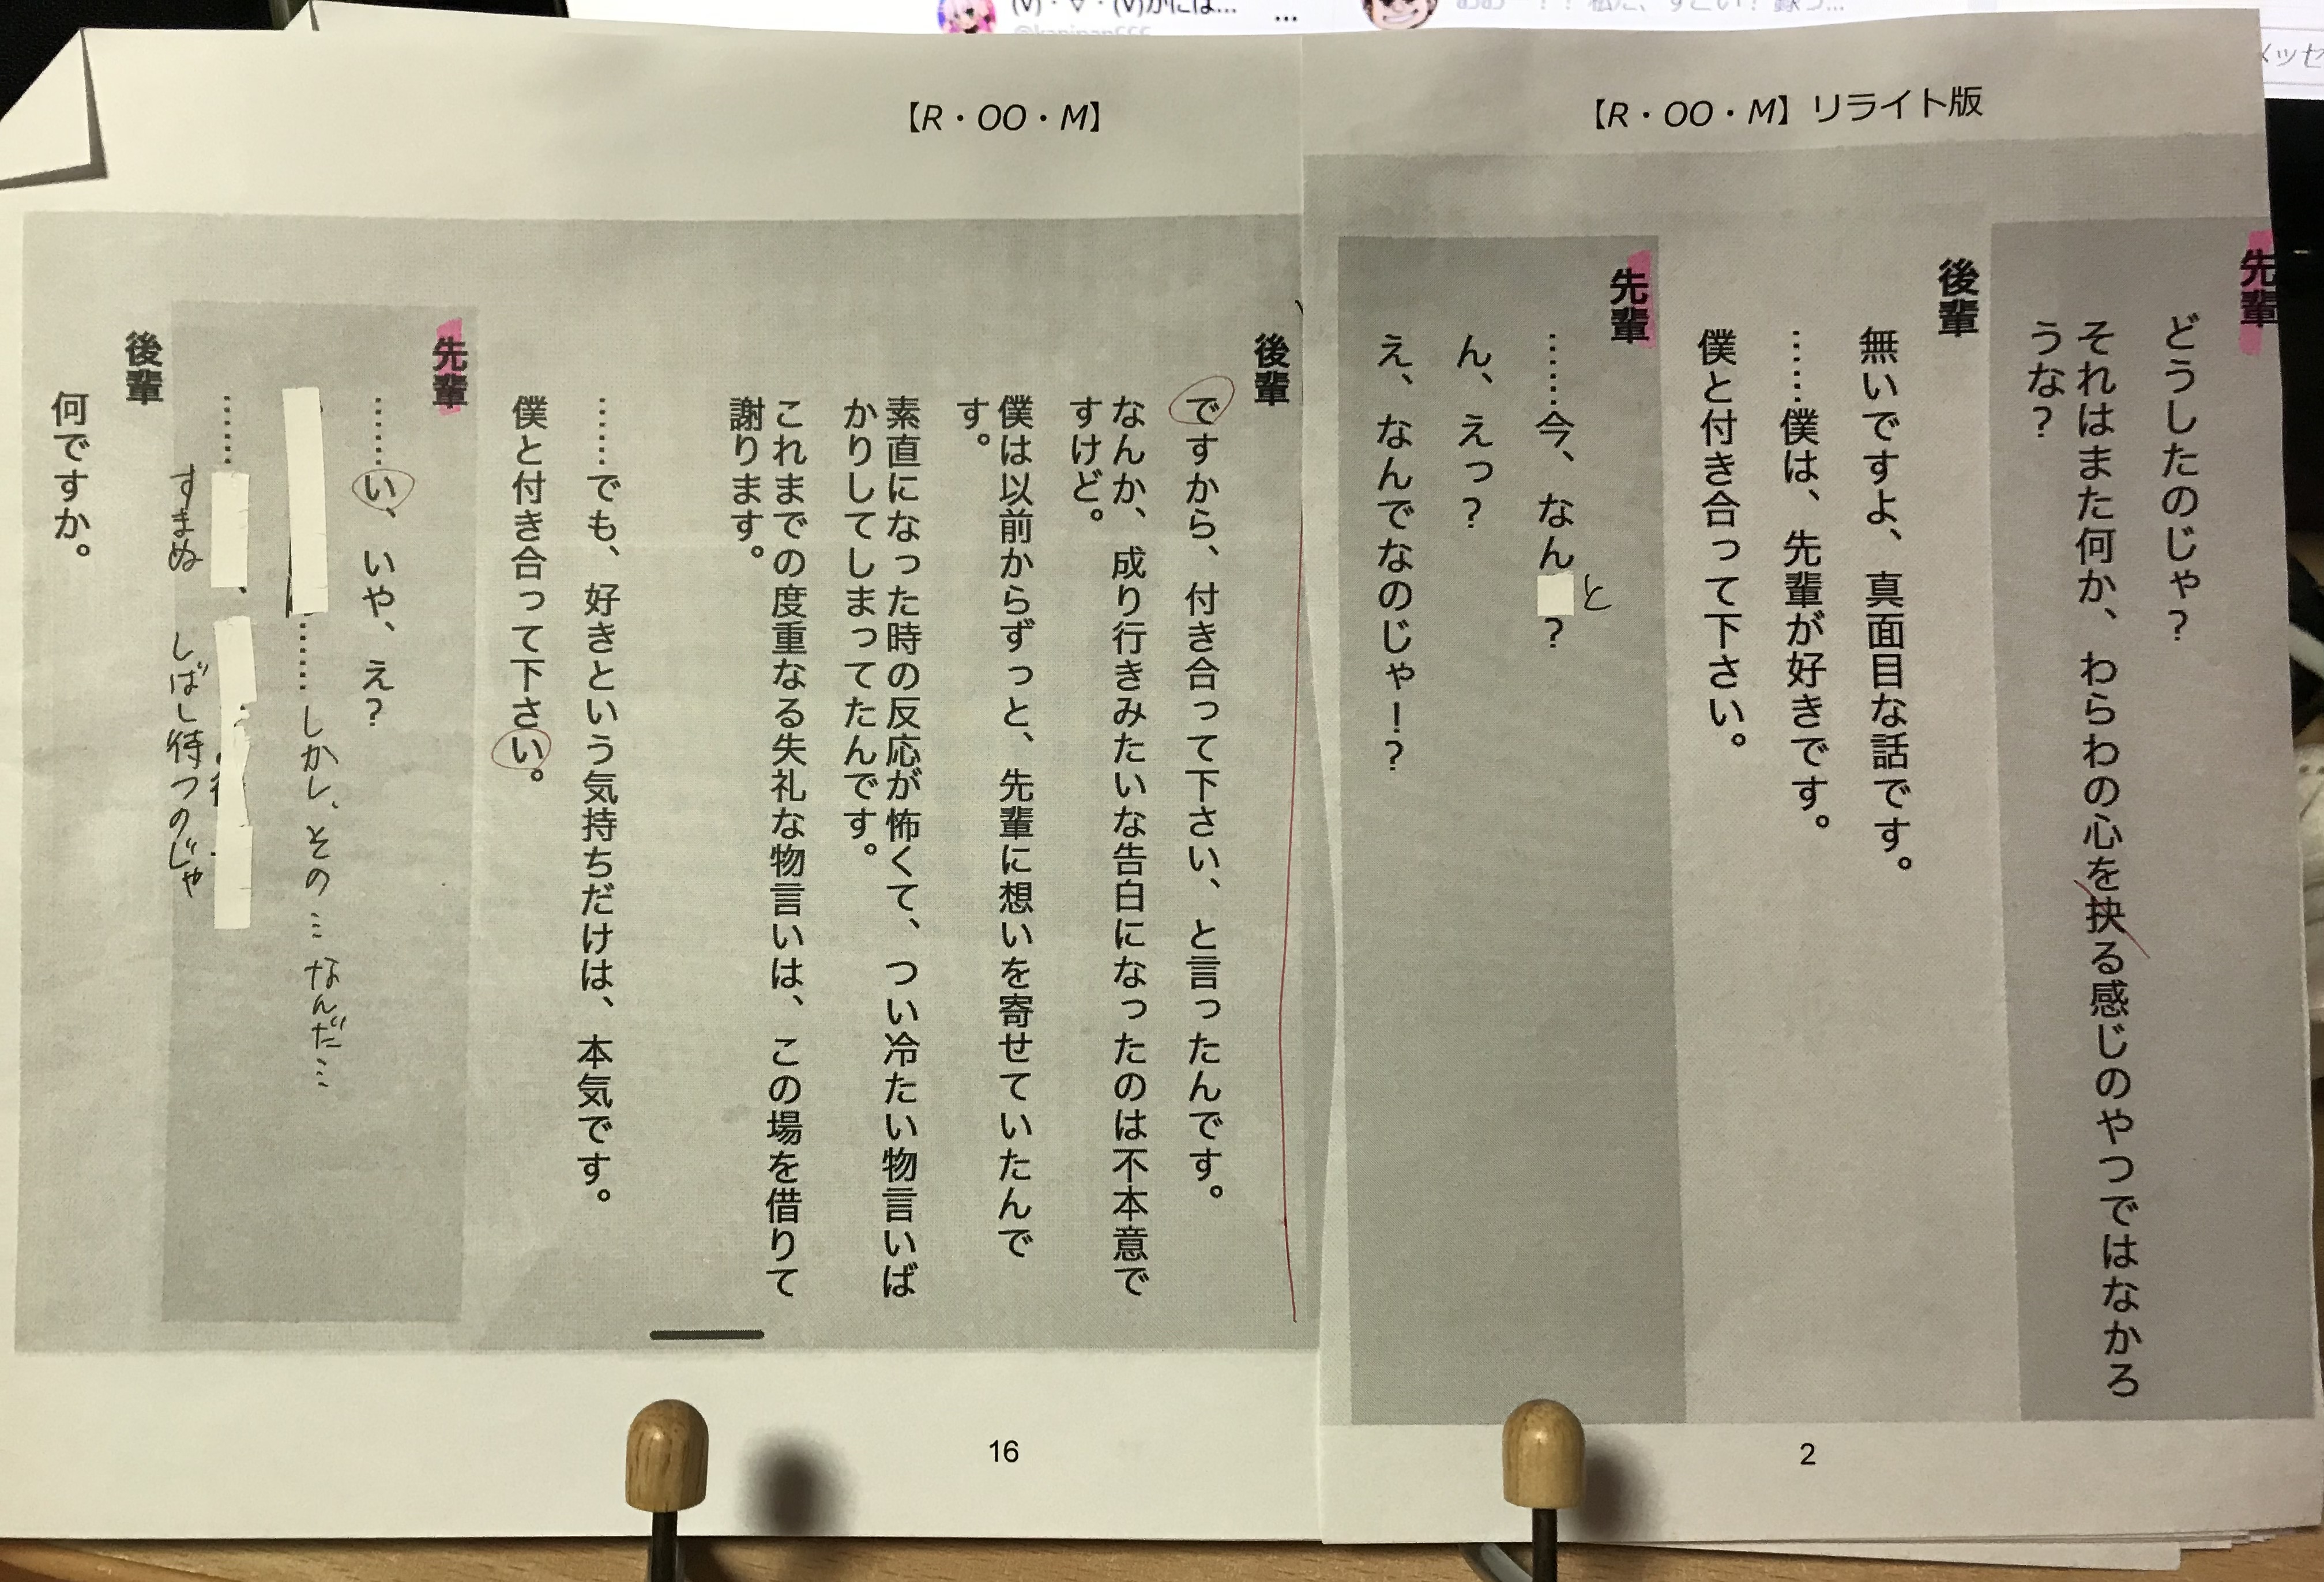 (V)・∇・(V)かには…
…
【R・OO・M】リライト版
先輩
どうしたのじゃ？
それはまた何か、わらわの心を抉る感じのやつではなかろ
うな？
後輩
無いですよ、真面目な話です。
……僕は、先輩が好きです。
僕と付き合って下さい。
先輩
……今、なんと？
ん、えっ？
え、なんでなのじゃー！？
2
【R・OO・M】
後輩
ですから、付き合って下さい、と言ったんです。
なんか、成り行きみたいな告白になったのは不本意で
すけど。
僕は以前からずっと、先輩に想いを寄せていたんで
す。
素直になった時の反応が怖くて、つい冷たい物言いば
かりしてしまってたんです。
これまでの度重なる失礼な物言いは、この場を借りて
謝ります。
……でも、好きという気持ちだけは、本気です。
僕と付き合って下さい。
先輩
……い、いや、え？
……しかし、その…なんだ…
……すまぬ、しばし待つのじゃ
後輩
何ですか。
16